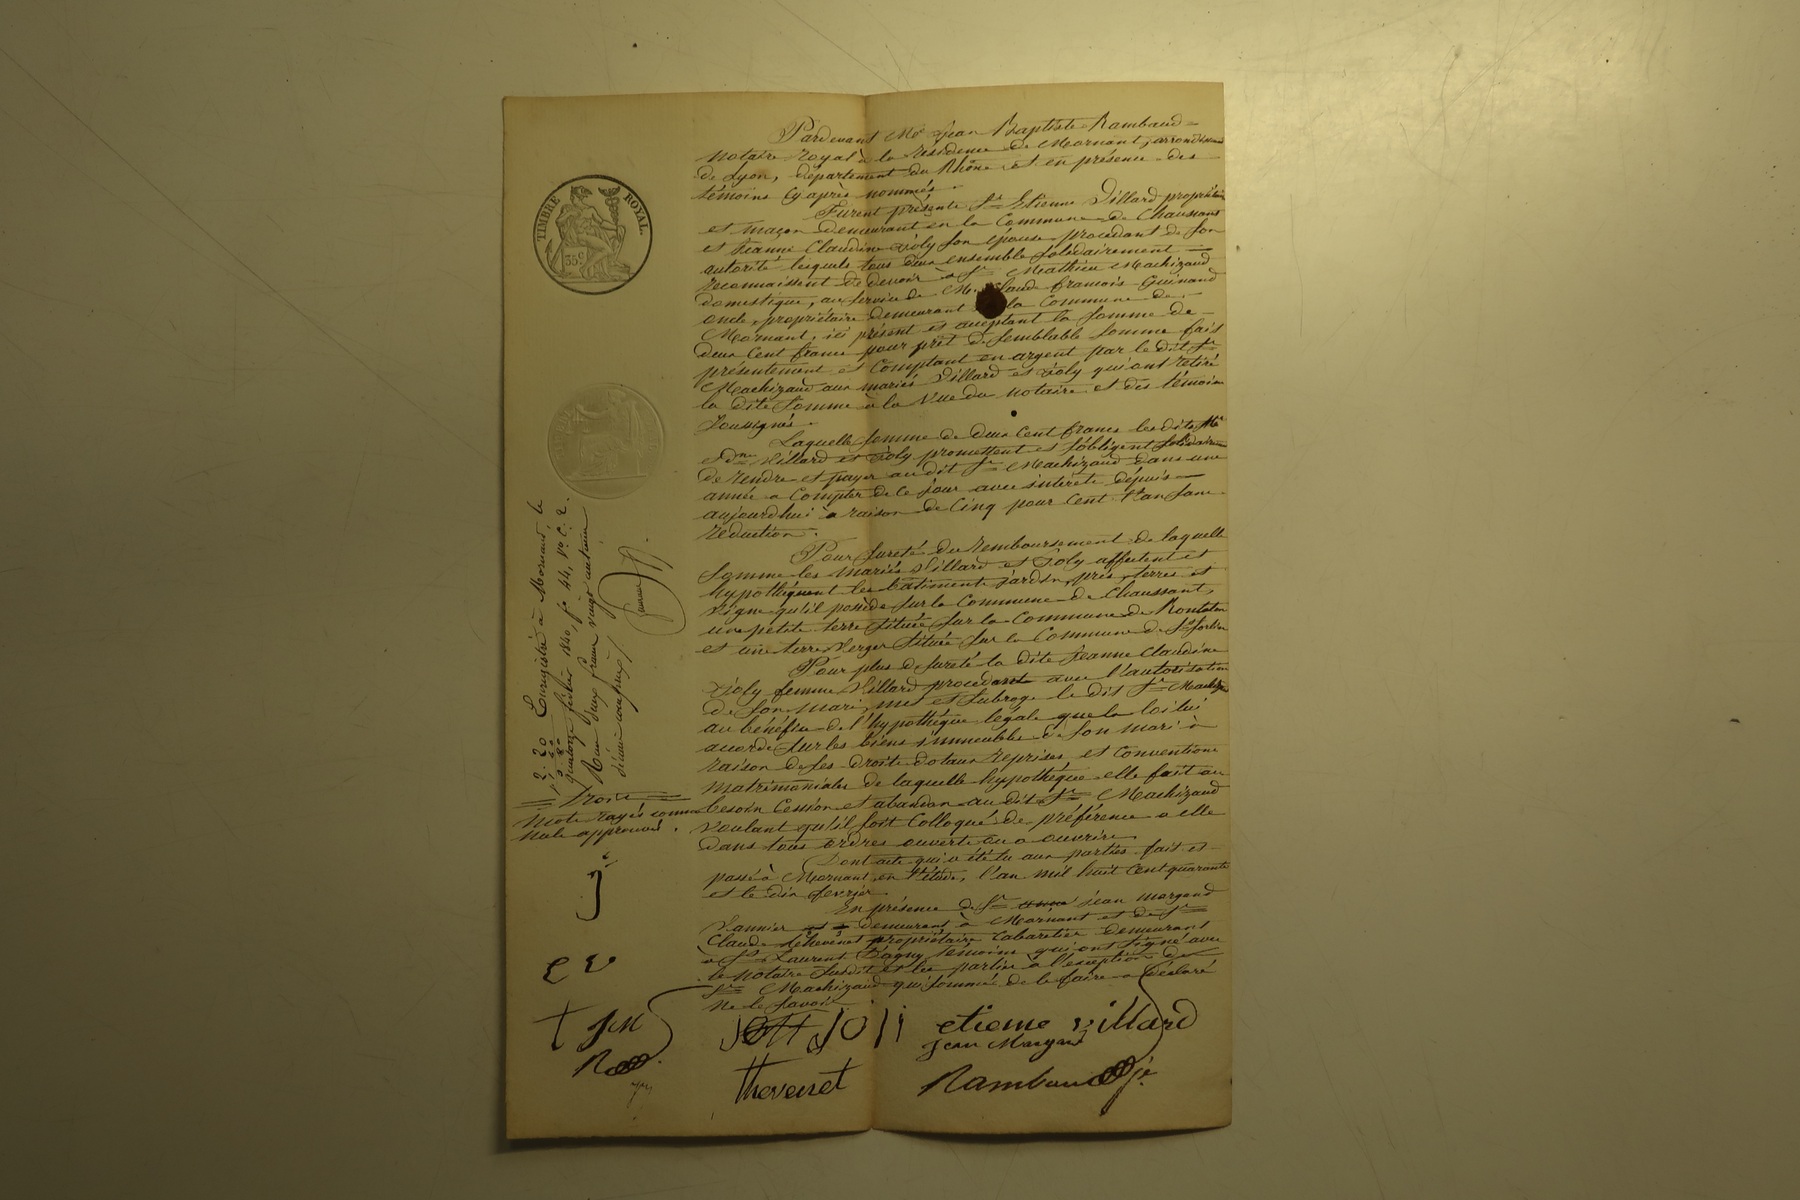 Pardevant Me Jean Baptiste Rambaud
notaire Royal à la résidence de Mornant, arrondissement
de Lyon, département du Rhône et en présence des
témoins cy après nommés.
Furent présents Sr Etienne Villard propriétaire
et maçon demeurant en la Commune de Chaussant
et Jeanne Claudine Joly son épouse procédant de son
autorité lesquels tous deux ensemble solidairement
reconnaissent de devoir à Sr Mathieu Machizaud
domestique, au service de M. Claude françois Guinand
oncle, propriétaire demeurant la Commune de
Mornant, ici présent et acceptant la somme de
deux Cent francs pour prêt de semblable somme fait
présentement et Comptant en argent par le dit Sr
Machizaud aux mariés Villard et Joly qui ont retiré
la dite somme à la vue du notaire et des témoins
soussignés.
Laquelle somme de deux Cent francs les dits
Villard et Joly promettent et s'obligent solidairement
de rendre et payer au dit Sr Machizaud dans une
année a Compter de ce jour avec intérets dépuis
aujourdhui à raison de Cinq pour Cent l'an sans
réduction.
Pour sureté du remboursement de laquelle
somme les mariés Villard et Joly affectent et
hypothéquent les batiments jardin, prés, terres et
vigne qu'il posséde sur la Commune de Chaussant,
une petite terre située sur la Commune de Rontalon
et une terre Verger située sur la Commune de St Sorlin
Pour plus de sureté la dite Jeanne Claudine
Joly femme Villard procédant avec l'autorisation
de son mari, met et subroge le dit Sr Machizaud
au bénéfice de l'hypothéque légale que la loi lui
acorde sur les biens immeubles de son mari à
raison de ses droits dotaux reprises et Conventions
matrimoniales de laquelle hypothéque elle fait au
besoin Cession et abandon au dit Sr Machizaud
voulant qu'il soit Colloqué de préférence a elle
dans tous ordres ouverts ou a ouvrir.
Dont acte qui a été lu aux parties fait et
passé à Mornant en l'étude, l'an mil huit Cent quarante
et le dix fevrier.
En présence de Sr jéan morgand
Vannier demeurant à Mornant et de Sr
Claude thévenet propriétaire Cabaretier demeurant
a St Laurent Dagny témoins qui ont signé avec
le notaire susdit et les parties à l'exception de
Sr Machizaud qui sommé de le faire a déclaré
ne le savoir.
joli etienne villard
jean Morgand
thevenet Rambaud
TIMBRE ROYAL.
35 c
Enregistré à Mornant, le
quatorze février 1840, fo 44, Vo C. 2.
Reçu deux francs vingt centimes
décime compris
2. 20
Trois
mots rayés comme
nuls approuvés.
j
e v
t J M